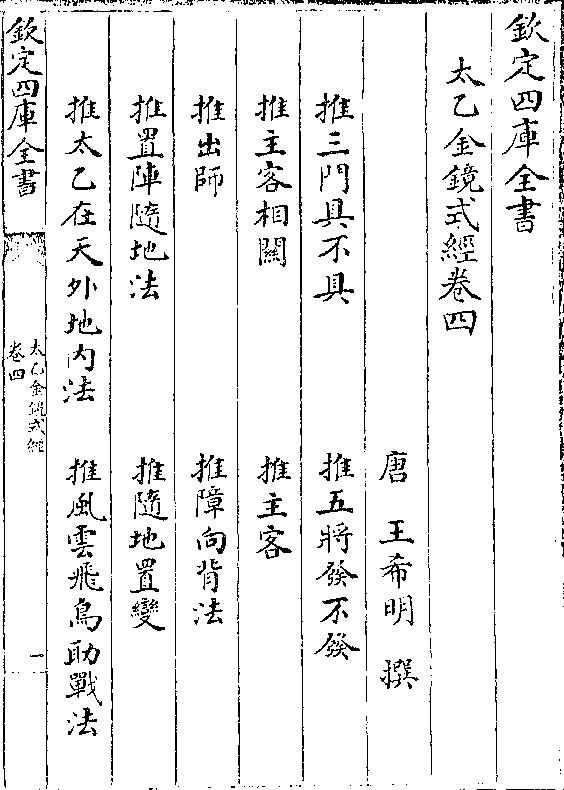 欽定四庫全書
太乙金鏡式經卷四
唐 王希明 撰
推三門具不具 推五將發不發
推主客相關 推主客
推出師 推障向背法
推置陣隨地法 推隨地置變
推太乙在天外地内法 推風雲飛鳥助戰法
欽定四庫全書
太乙金鏡式經
卷四
一